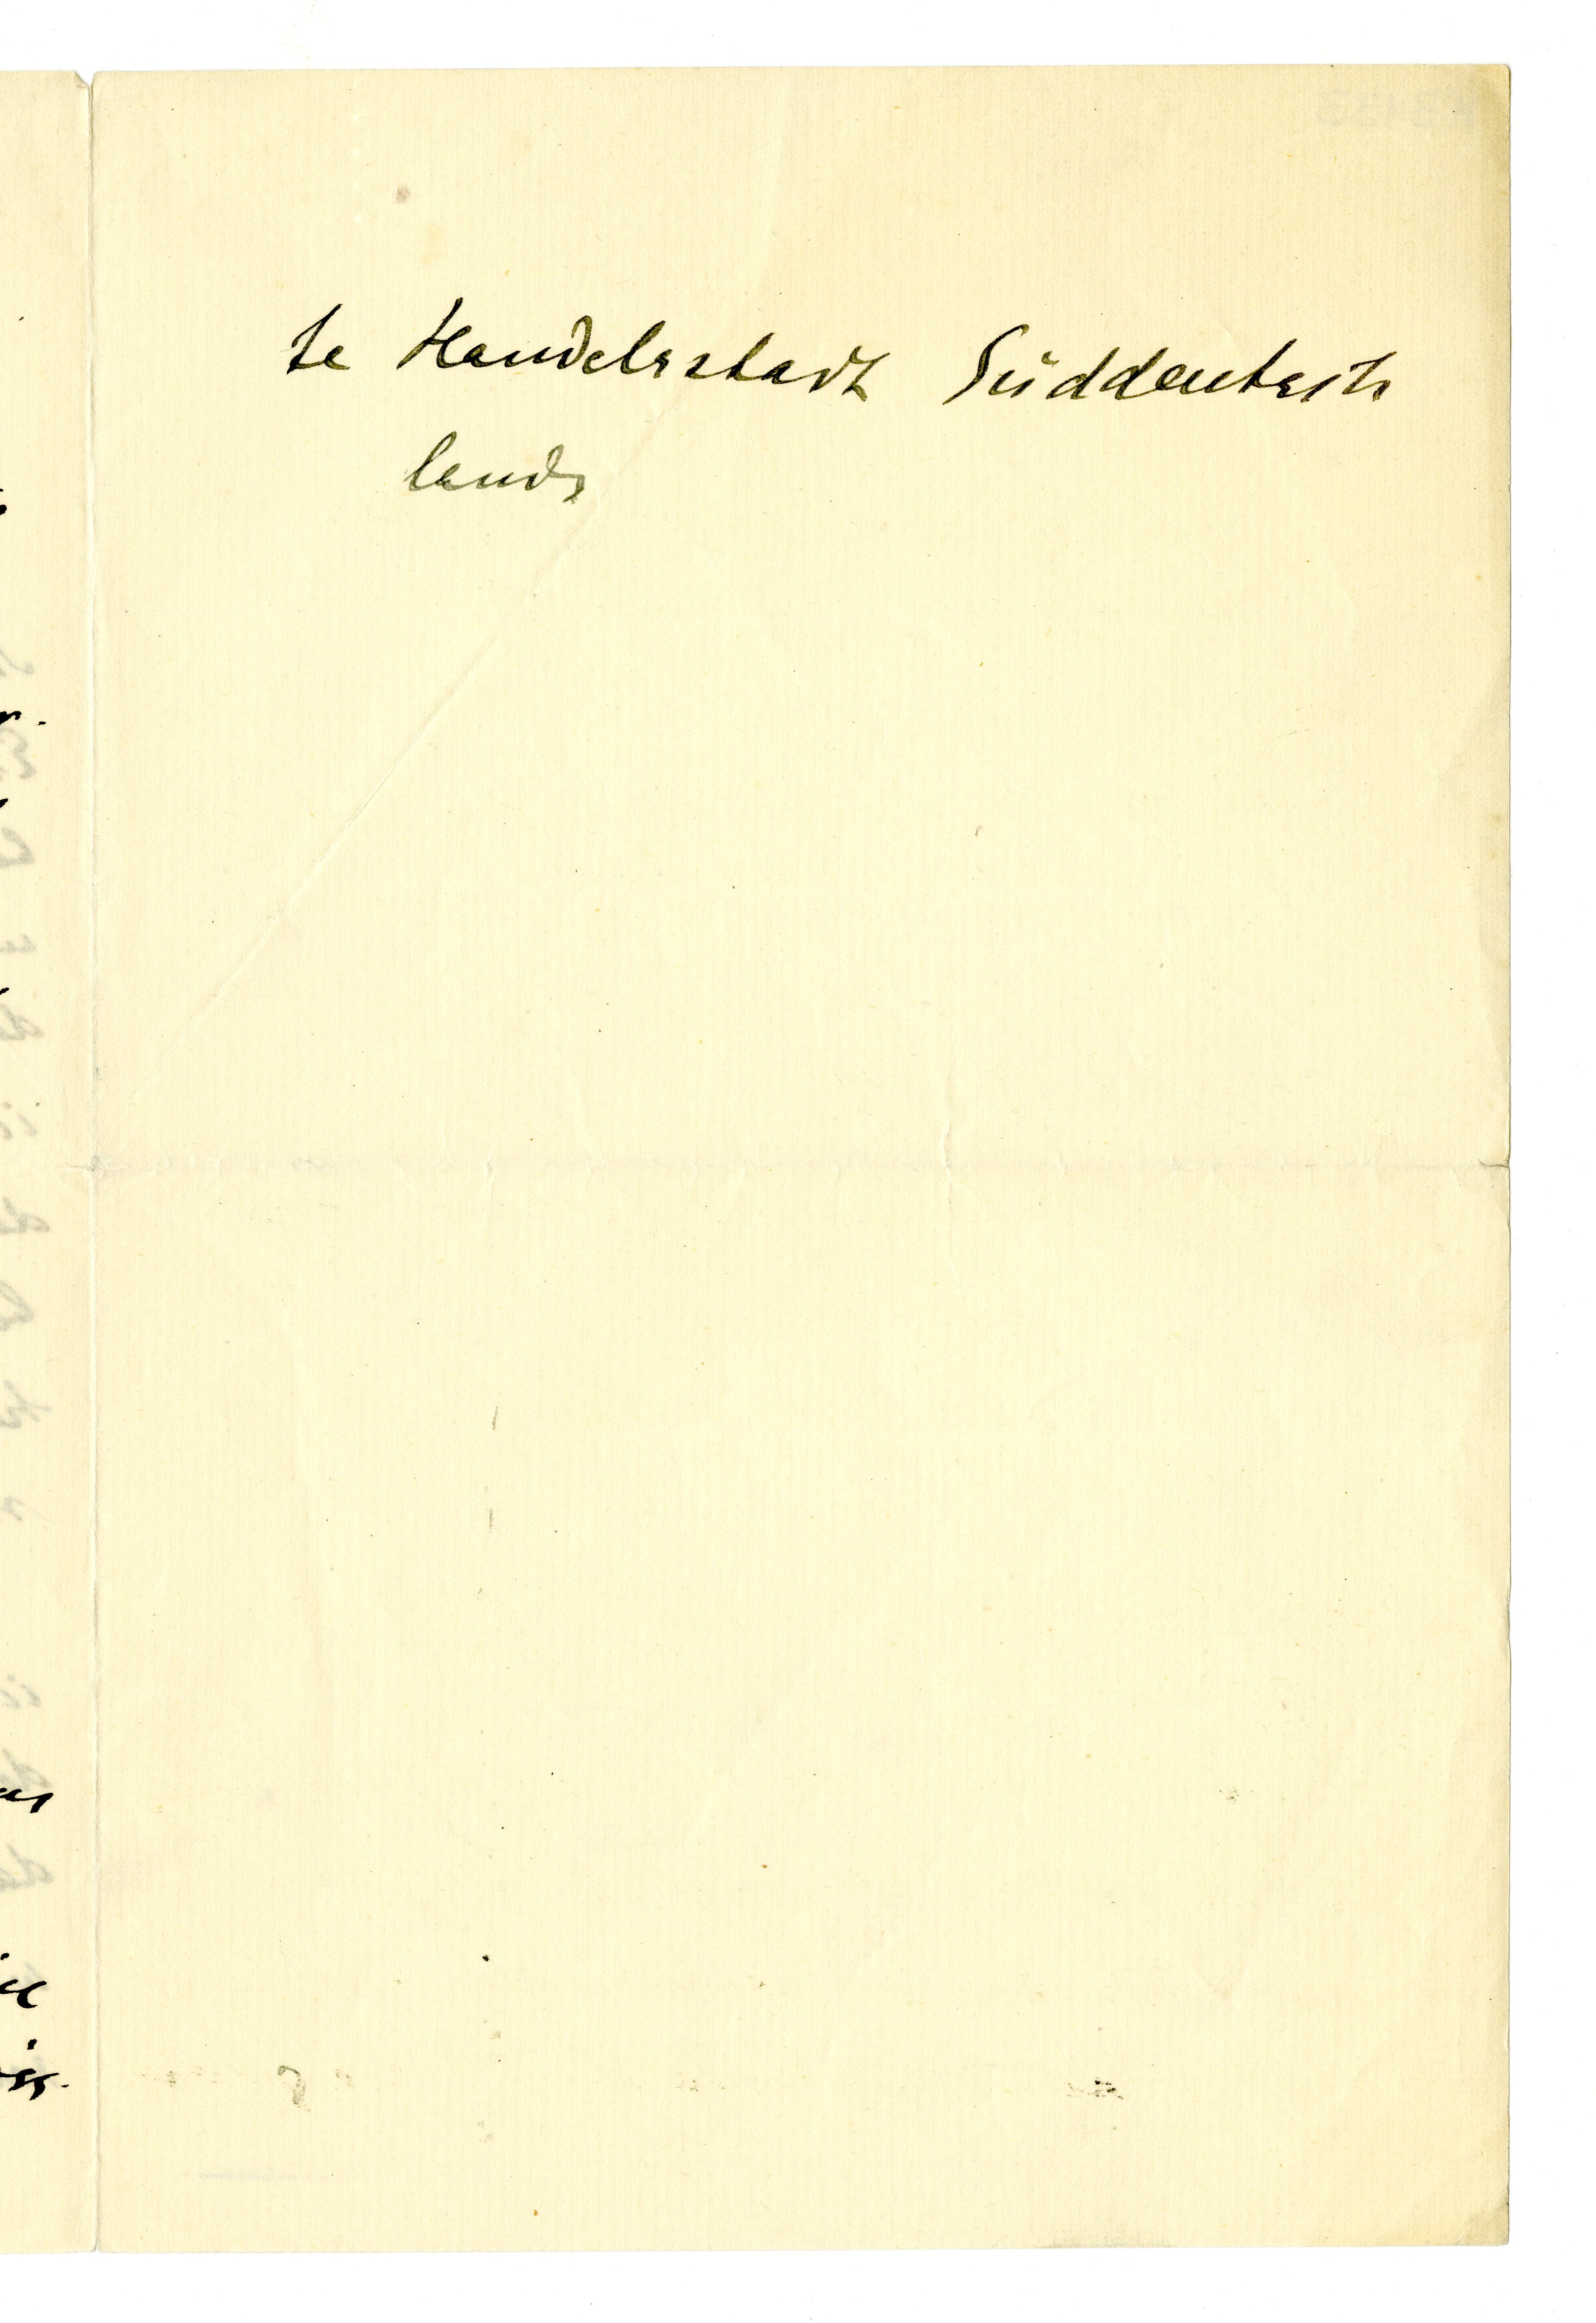 te Handelsstadt Süddeutsch
lands